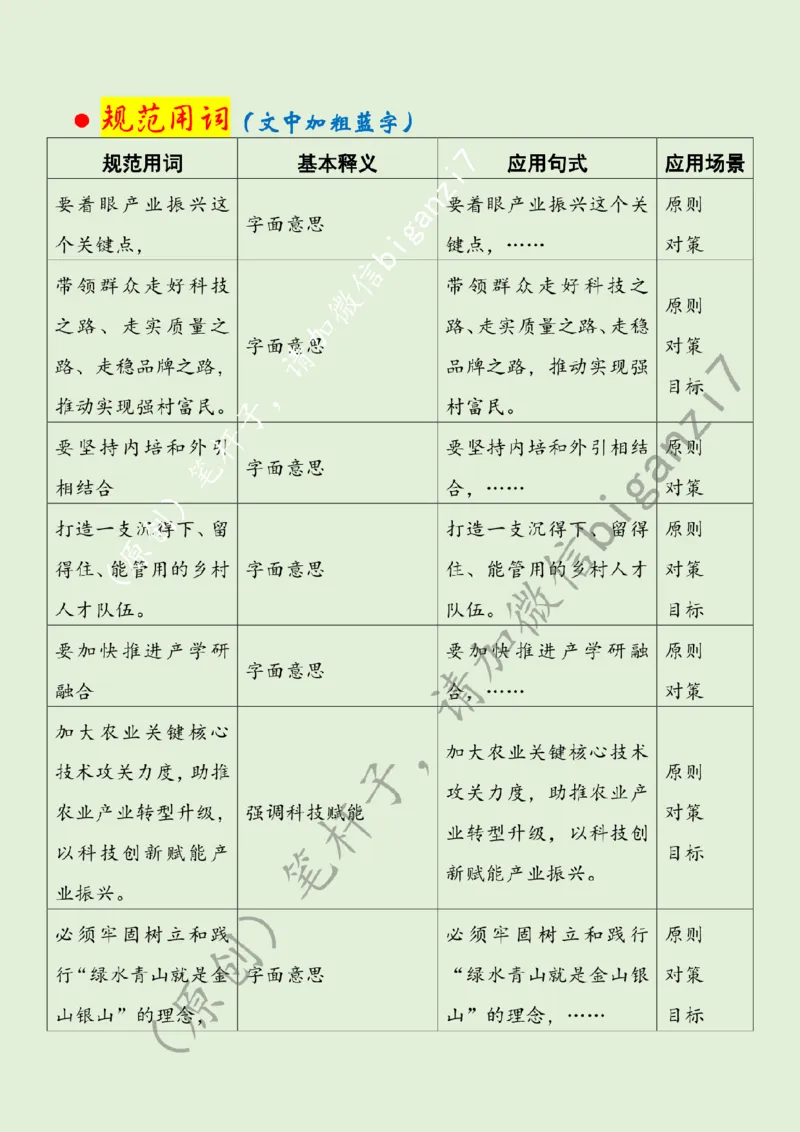 ● 规范用词（文中加粗蓝字）
规范用词 基本释义 应用句式 应用场景
要着眼产业振兴这
个关键点，
字面意思
要着眼产业振兴这个关
键点，……
原则
对策
带领群众走好科技
之路、走实质量之
路、走稳品牌之路，
推动实现强村富民。
字面意思
带领群众走好科技之
路、走实质量之路、走稳
品牌之路，推动实现强
村富民。
原则
对策
目标
要坚持内培和外引
相结合
字面意思
要坚持内培和外引相结
合，……
原则
对策
打造一支沉得下、留
得住、能管用的乡村
人才队伍。
字面意思
打造一支沉得下、留得
住、能管用的乡村人才
队伍。
原则
对策
目标
要加快推进产学研
融合
字面意思
要加快推进产学研融
合，……
原则
对策
加大农业关键核心
技术攻关力度，助推
农业产业转型升级，
以科技创新赋能产
业振兴。
强调科技赋能
加大农业关键核心技术
攻关力度，助推农业产
业转型升级，以科技创
新赋能产业振兴。
原则
对策
目标
必须牢固树立和践
行“绿水青山就是金
山银山”的理念，
字面意思
必须牢固树立和践行
“绿水青山就是金山银
山”的理念，……
原则
对策
目标
（原创）笔杆子，请加微信biganzi7
（原创）笔杆子，请加微信biganzi7